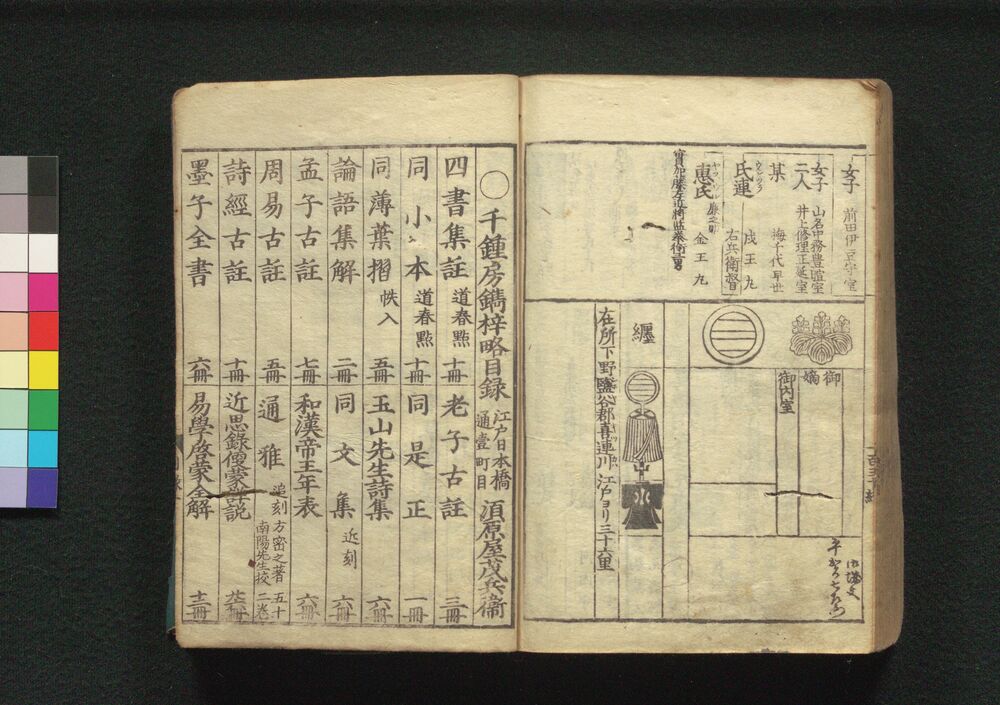 女子 前田伊豆守室
女子 山名中務豊暄室
二人 井上修理正延室
某 梅千代早世
氏連 右兵衛督
惠氏 金王丸
實加藤左近将監泰衑男
御嫡
御内室
纏
在所下野鹽谷郡喜連川 江戸ヨリ三十六里
〇千鍾房鐫梓略目録 江戸日本橋通壹町目 須原屋茂兵衞
四書集註 道春點 十冊
老子古註 三冊
同小本 道春點 十冊
同是正 一冊
同薄葉摺 帙入 五冊
玉山先生詩集 六冊
論語集解 二冊
同文集 近刻 六冊
孟子古註 七冊
和漢帝王年表 六冊
周易古註 五冊
通雅 追刻 方密之著 南陽先生校 五十二卷
詩經古註 十冊
近思錄
墨子全書 六冊
易學啓蒙全解